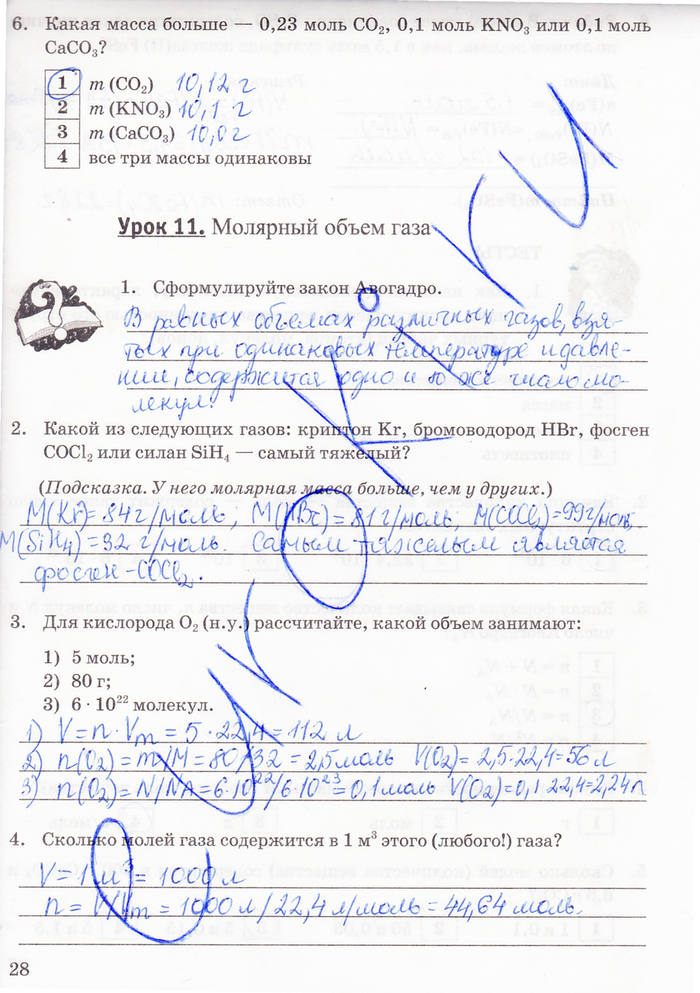 6. Какая масса больше — 0,23 моль CO₂, 0,1 моль KNO₃ или 0,1 моль
CaCO₃?
1 m (CO₂) 10,12 г
2 m (KNO₃) 10,1 г
3 m (CaCO₃) 10,0 г
4 все три массы одинаковы
Урок 11. Молярный объем газа
1. Сформулируйте закон Авогадро.
В равных объемах различных газов, взя-
тых при одинаковых температуре и давле-
нии, содержится одно и то же число мо-
лекул.
2. Какой из следующих газов: криптон Kr, бромоводород HBr, фосген
COCl₂ или силан SiH₄ — самый тяжелый?
(Подсказка. У него молярная масса больше, чем у других.)
M(Kr)=84г/моль, M(HBr)=81г/моль, M(COCl₂)=99г/моль.
M(SiH₄)=32 г/моль. Самым тяжелым является
фосген-COCl₂.
3. Для кислорода O₂ (н.у.) рассчитайте, какой объем занимают:
1) 5 моль;
2) 80 г;
3) 6 · 10²² молекул.
1) V=n·Vm=5·22,4=112 л
2) n(O₂)=m/M=80/32=2,5моль V(O₂)=2,5·22,4=56л
3) n(O₂)=N/NA=6·10²²/6·10²³=0,1моль V(O₂)=0,1·22,4=2,24л
4. Сколько молей газа содержится в 1 м³ этого (любого!) газа?
V=1м³=1000л
n=V/Vm=1000л/22,4л/моль=44,64 моль.
28